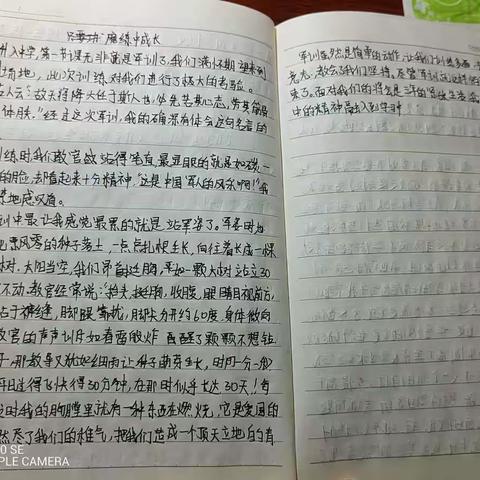 只要拼 磨练中成长
升入中学,第一节课无非就是军训了,我们满怀期望来到
训场地,此次训练对我们进行了极大的考验。
古人云:"故天将降大任于斯人也,必先苦其心志,劳其筋骨
体肤。"经过这次军训,我的确深有体会这句名言的
练时我们教官故站得笔直,最显眼的就是如碳一
的脸,却看起来十分精神,"这是中国军人的风采啊!"我
地感叹道。
训中最让我感觉最累的就是站军姿了。军姿时如
风零的种子落土,一点点扎根生长,向往着长成一棵
树,太阳当空,我们昂首挺胸,宛如一颗大树站立30
不动。教官经常说:"抬头,挺胸,收腹,眼睛目视前方,
贴于裤缝,脚跟靠拢,脚尖分开约60度,身体微向
教官的声声训斥如春雷般炸醒了颗颗不想钻
子,那教导又犹如细雨让种子萌芽生长,时间一分一秒
平日过得飞快得30分钟,在那时似乎长达30天!每
时我的胸膛里就有一种东西在燃烧,它是爱国的
燃尽了我们的稚气,把我们造成一个顶天立地的青
军训虽然是简单的动作,让我们训练多面
亮光,教会了我们坚持。尽管军训在这
来了。面对我们的将会是三年的
中的精神融入到学习中
0 SE
PLE CAMERA